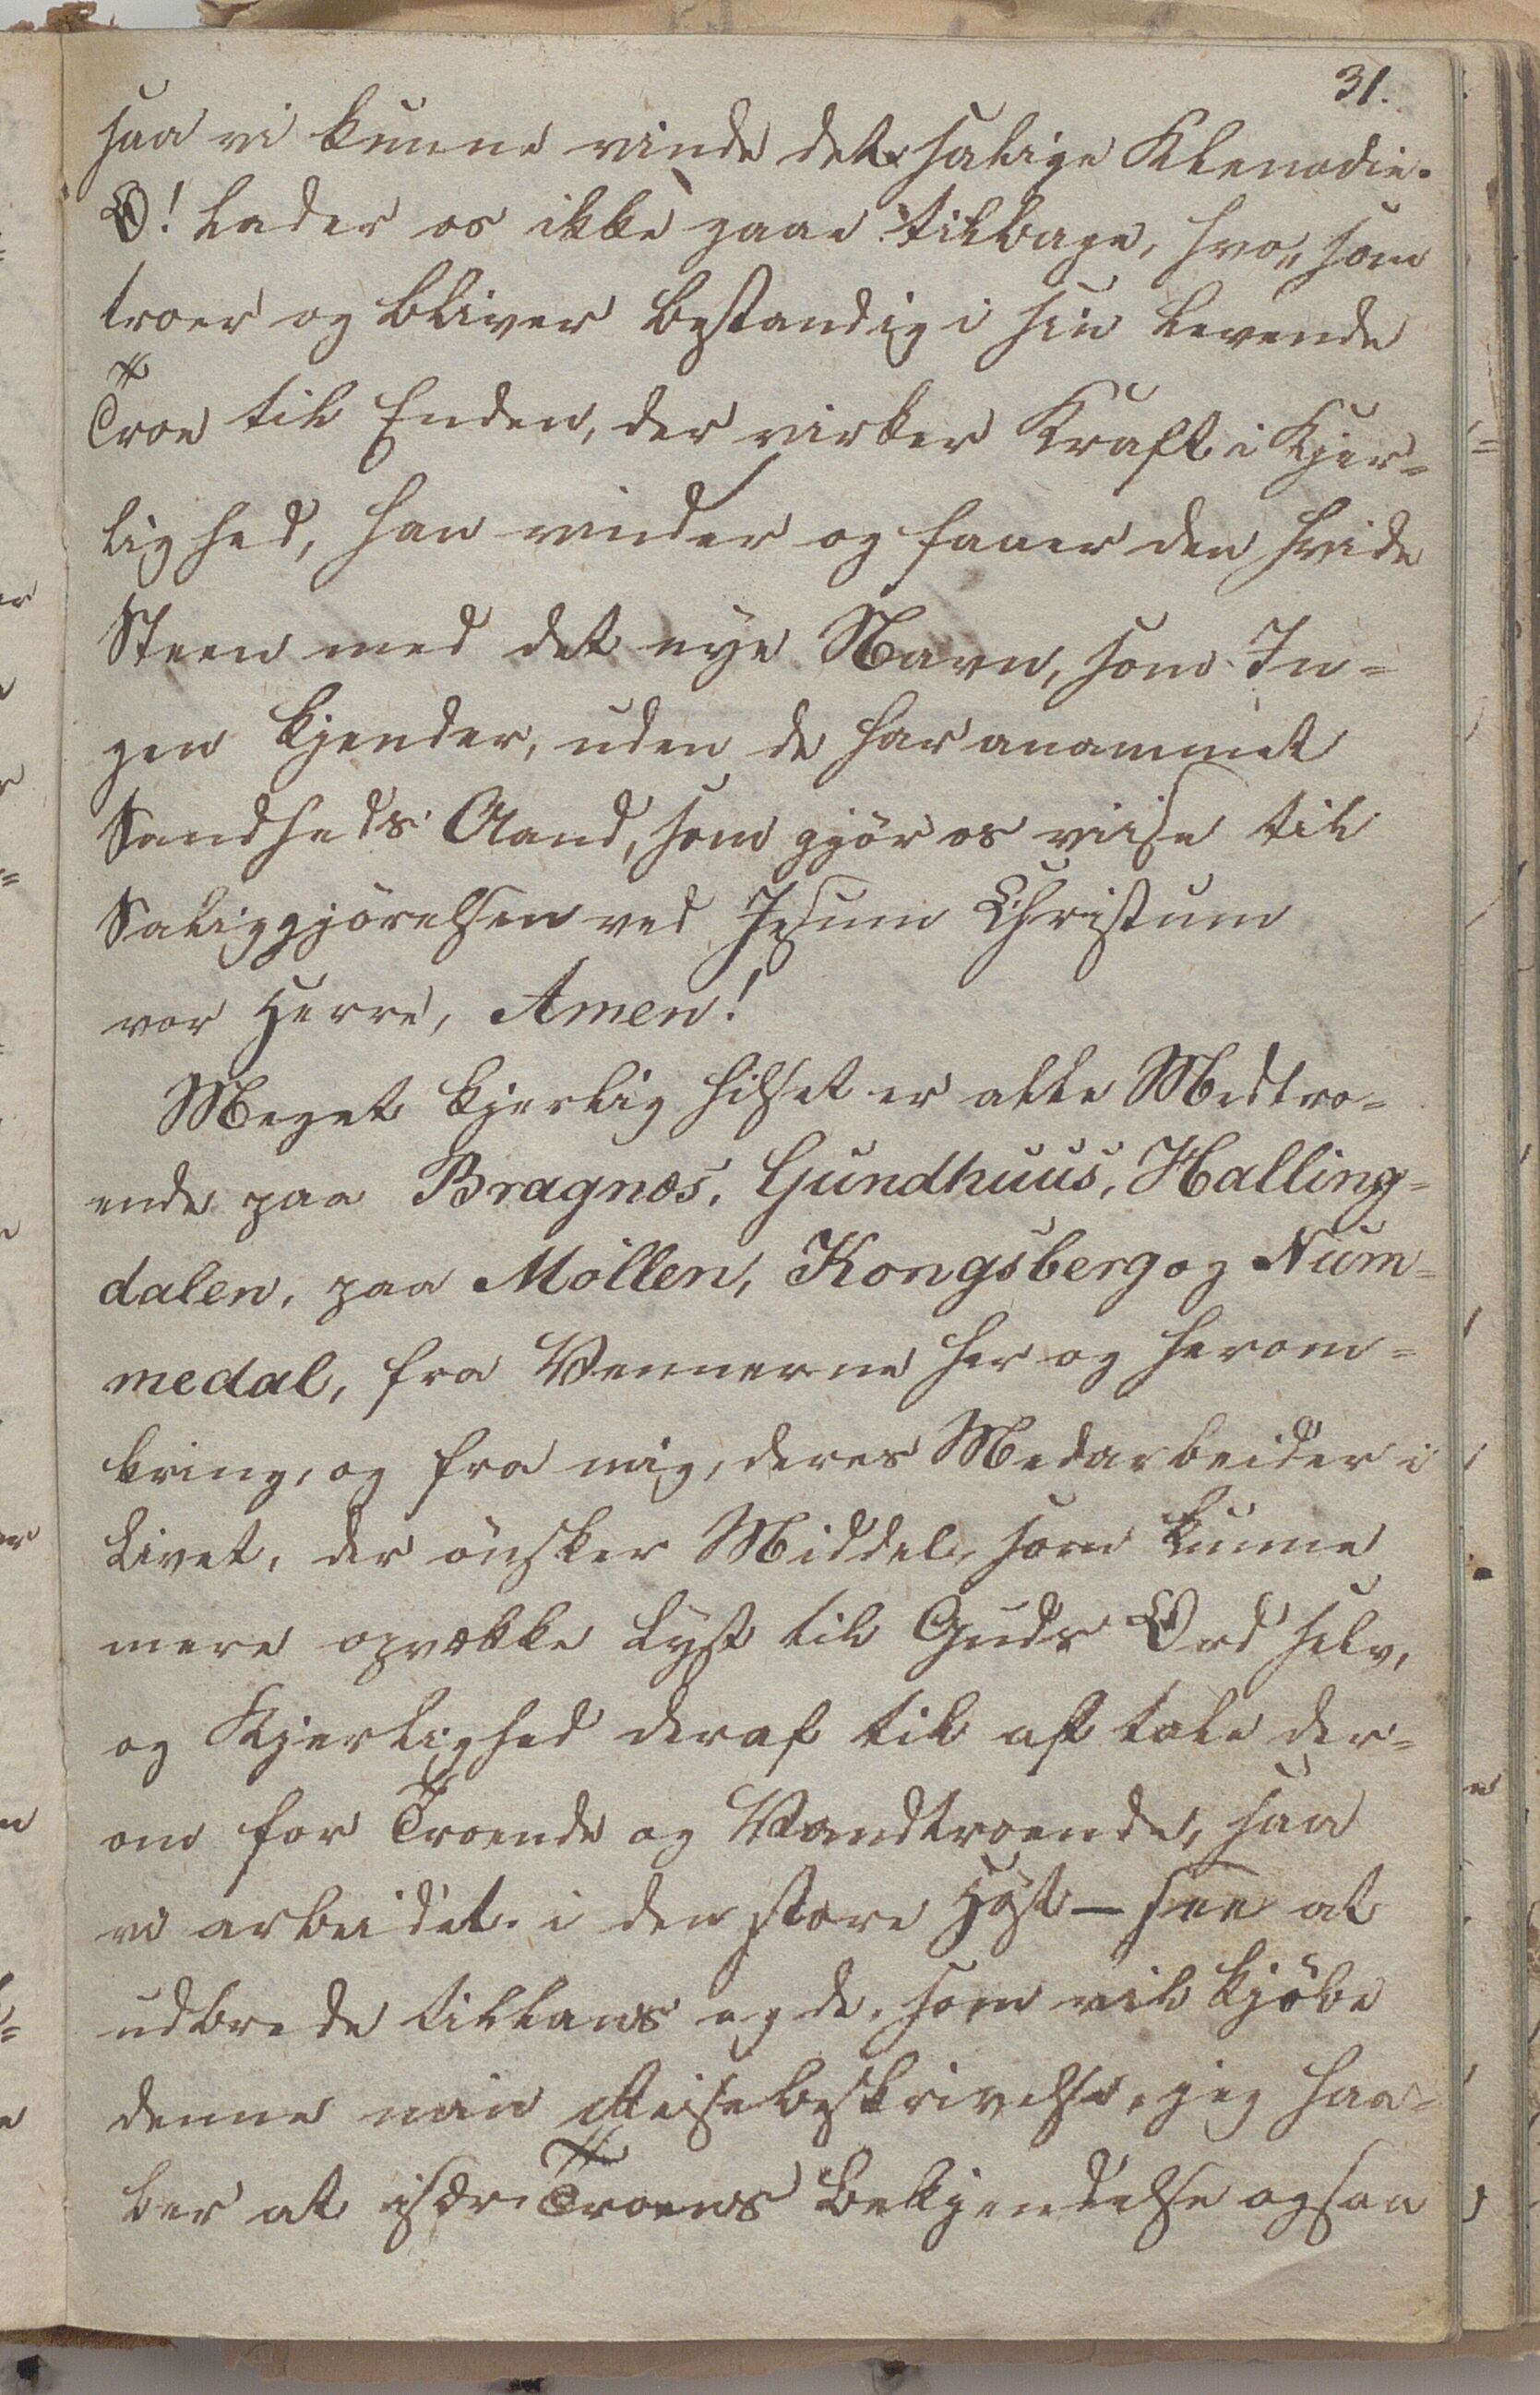 31.
saa vi kunne vinde det salige Klenodie.
O! lader os ikke gaae tilbage, hvo„ som
troer og bliver bestandig i sin levende
Troe til Enden, der virker Kraft i Kjer-
lighed, han vinder og faaer den hvide
Steen med det nye Navn, som In-
gen kjender, uden de har anammet
Sandheds Aand, som gjör os viise til
Saliggjörelsen ved Jesum Christum
vor Herre, Amen!
Meget kjerlig hilset er alle Medtro-
ende paa Bragnæs, Gundhuus, Halling-
dalen, paa Möllen, Kongsberg og Num-
medal, fra Vennerne her og herom-
kring, og fra mig, deres Medarbeider i
Livet, der önsker Middel, som kunne
mere opvække Lyst til Guds Ord selv,
og Kjerlighed deraf til at tale der-
om for Troende og Vandtroende, saa
vi arbeidet i den store Höst – see at
udbrede tillans og de, som vil kjöbe
denne min Reisebeskrivelse, jeg haa-
ber at især Troens Bekjendelse ogsaa